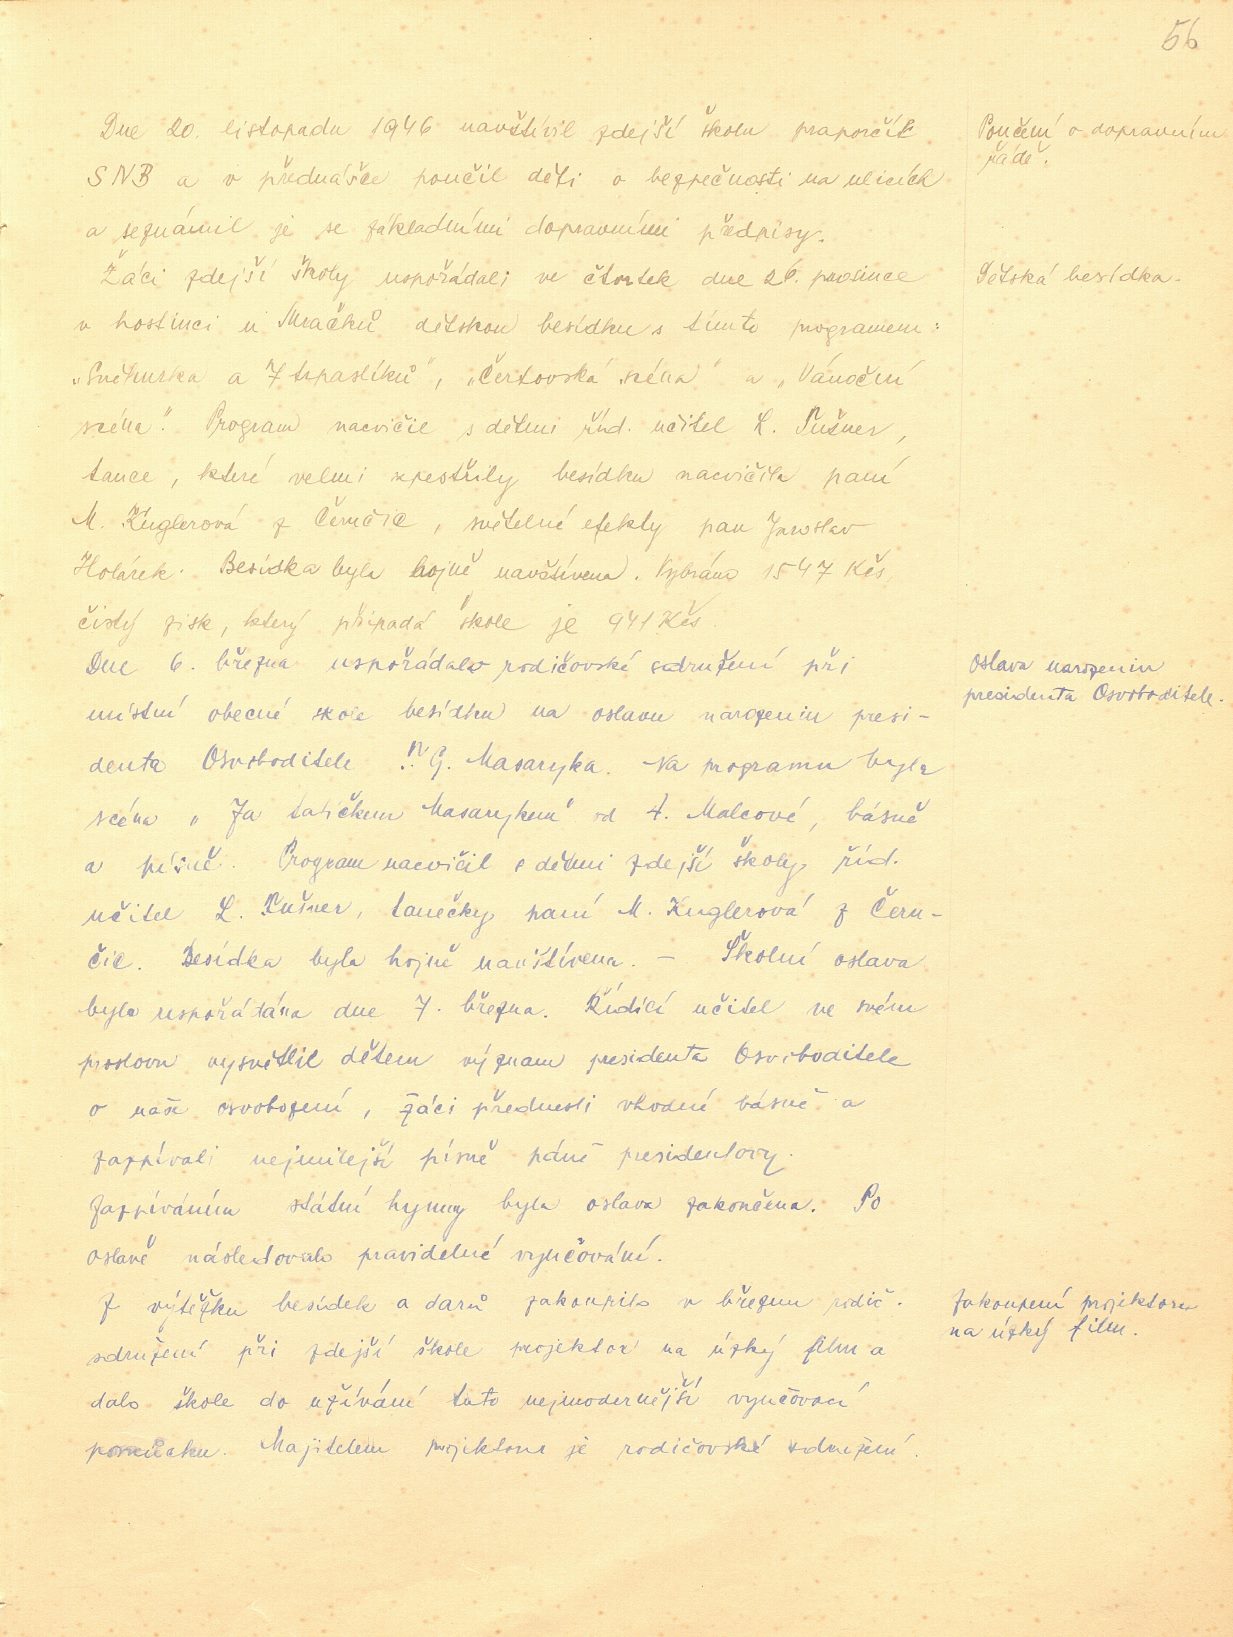 56
Dne 20. listopadu 1946 navštívil zdejší školu praporčík
Poučení o dopravním
řádě.
SNB a v přednášce poučil děti o bezpečnosti na ulicích
a seznámil je se základními dopravními předpisy.
Žáci zdejší školy uspořádali ve čtvrtek dne 26. prosince
Dětská besídka.
v hostinci u Mračků dětskou besídku s tímto programem:
„Sněhurka a 7 trpaslíků", „Čertovská scéna" a „Vánoční
scéna". Program nacvičil s dětmi říd. učitel L. Tušner,
tance, které velmi zpestřily besídku nacvičila paní
M. Kuglerová z Černčic, světelné efekty pan Jaroslav
Holárek. Besídka byla hojně navštívena. Vybráno 1547 Kčs,
čistý zisk, který připadá škole je 941 Kčs.
Dne 6. března uspořádalo rodičovské sdružení při
Oslava narozenin
presidenta Osvoboditele.
místní obecné škole besídku na oslavu narozenin presi-
denta Osvoboditele T. G. Masaryka. Na programu byla
scéna „Za tatíčkem Masarykem" od A. Malcové, básně
a písně. Program nacvičil s dětmi zdejší školy říd.
učitel L. Tušner, tanečky paní M. Kuglerová z Čern-
čic. Besídka byla hojně navštívena. – Školní oslava
byla uspořádána dne 7. března. Řídící učitel ve svém
proslovu vysvětlil dětem význam presidenta Osvoboditele
o naše osvobození, žáci přednesli vhodné básně a
zazpívali nejmilejší písně páně presidentovy.
Zazpíváním státní hymny byla oslava zakončena. Po
oslavě následovalo pravidelné vyučování.
Z výtěžku besídek a darů zakoupilo v březnu rodič.
Zakoupení projektoru
na úzký film.
sdružení při zdejší škole projektor na úzký film a
dalo škole do užívání tuto nejmodernější vyučovací
pomůcku. Majitelem projektoru je rodičovské sdružení.